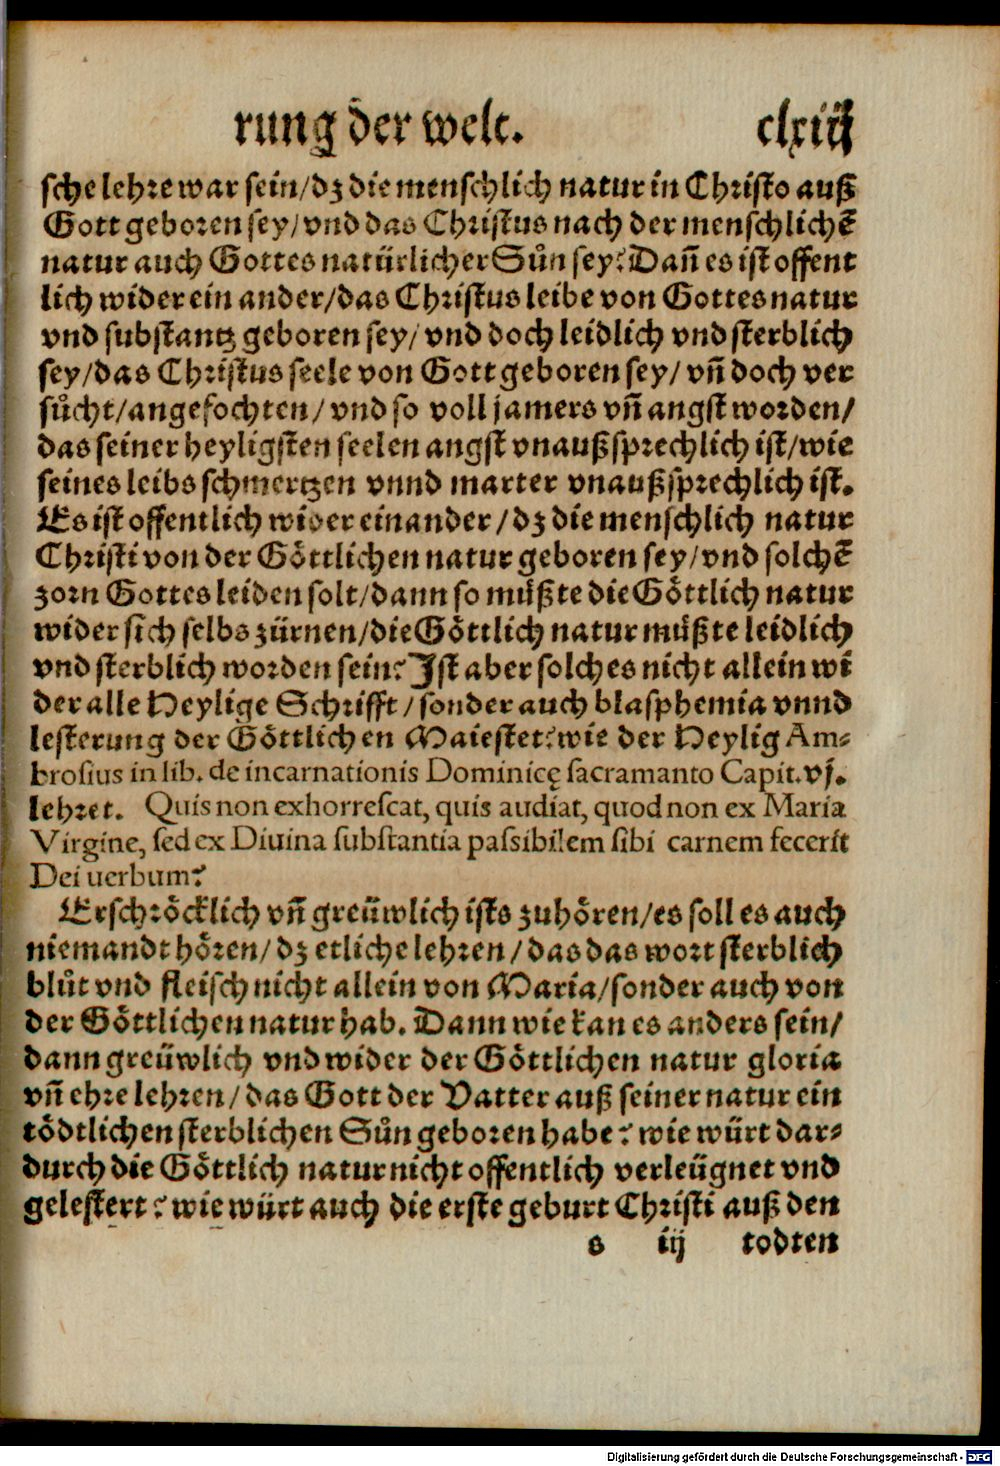 rung der welt. clxiij
sche lehre war sein/dz die menschlich natur in Christo auß
Gott geboren sey/vnd das Christus nach der menschlichē
natur auch Gottes natürlicher Sůn sey? Dañ es ist offent
lich wider ein ander/das Christus leibe von Gottes natur
vnd substantz geboren sey/ vnd doch leidlich vnd sterblich
sey/das Christus seele von Gott geboren sey/ vñ doch ver
sůcht/angefochten/ vnd so voll jamers vñ angst worden/
das seiner heyligsten seelen angst vnaußsprechlich ist/wie
seines leibs schmertzen vnnd marter vnaußsprechlich ist.
Es ist offentlich wider einander/dz die menschlich natur
Christi von der Göttlichen natur geboren sey/vnd solchē
zorn Gottes leiden solt/dann so müßte die Göttlich natur
wider sich selbs zürnen/die Göttlich natur müßte leidlich
vnd sterblich worden sein? Ist aber solches nicht allein wi
der alle Heylige Schrifft/sonder auch blasphemia vnnd
lesterung der Göttlichen Maiestet? wie der Heylig Am⸗
brosius in lib. de incarnationis Dominicę sacramanto Capit.vj.
lehret. Quis non exhorrescat, quis audiat, quod non ex Maria
Virgine, sed ex Diuina substantia passibilem sibi carnem fecerit
Dei uerbum?
Erschröcklich vñ greüwlich ists zuhören/es soll es auch
niemandt hören/dz etliche lehren/das das wort sterblich
blůt vnd fleisch nicht allein von Maria/sonder auch von
der Göttlichen natur hab. Dann wie kan es anders sein/
dann greüwlich vnd wider der Göttlichen natur gloria
vñ ehre lehren/das Gott der Vatter auß seiner natur ein
tödtlichen sterblichen Sůn geboren habe? wie würt dar⸗
durch die Göttlich natur nicht offentlich verleügnet vnd
gelestert? wie würt auch die erste geburt Christi auß den
s iij todten
Digitalisierung gefördert durch die Deutsche Forschungsgemeinschaft - DFG